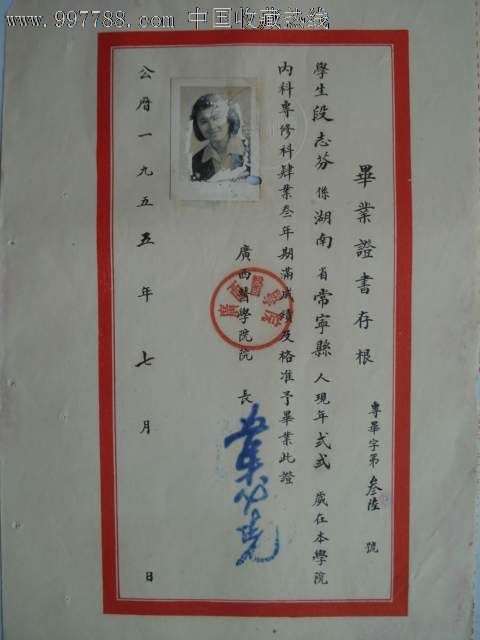 www.997788.com 中国收藏热线
畢業證書存根
專畢字第叁陸號
學生段志芬係湖南省常寧縣人現年弍弍歲在本學院
內科專修科肄業叁年期滿成績及格准予畢業此證
廣西醫學院院長
公曆一九五五年七月 日